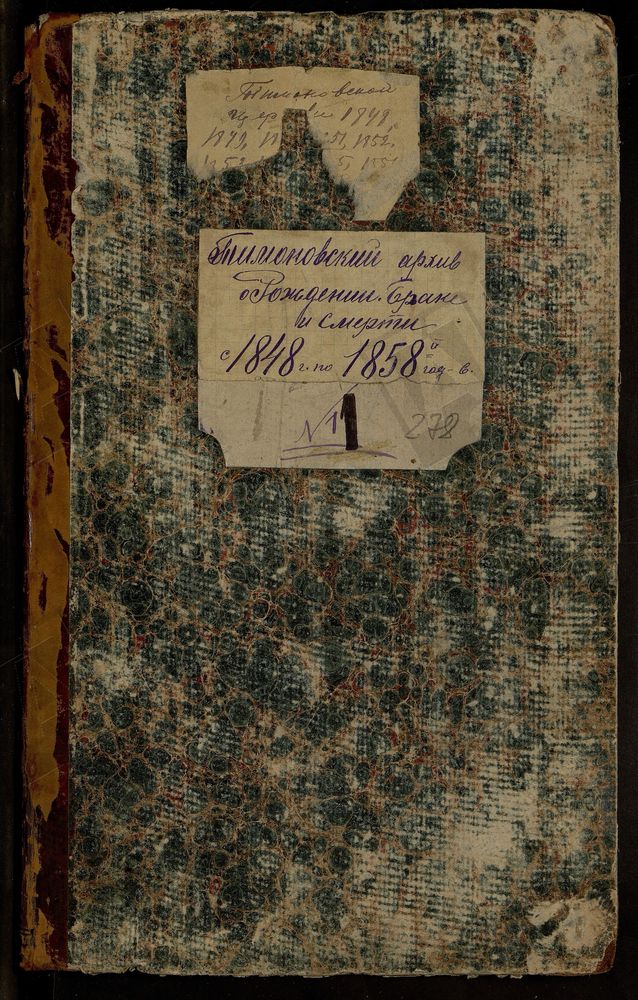 Тимоновской
церкви 1848,
1849, 51, 1852,
1853
Тимоновский архив
о Рождении. Браке
и смерти
с 1848 г. по 1858 й год-в.
№1 1 278